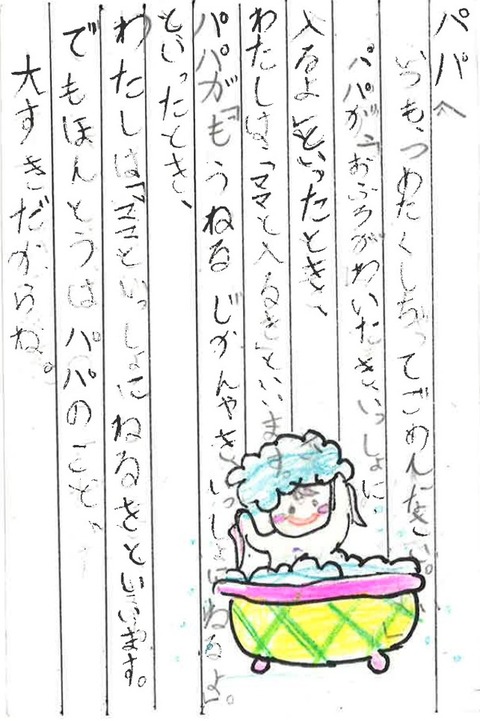 パパへ
いつも、つめたくしちゃってごめんなさい。
パパが「おふろがわいたき、いっしょに、
入るよ」といったとき、
わたしは「ママと入るき」といいます。
パパが「もうねるじかんやき、いっしょにねるよ。
といったとき、
わたしは「ママといっしょにねるきといいます。
でもほんとうはパパのこと、
大すきだからね。